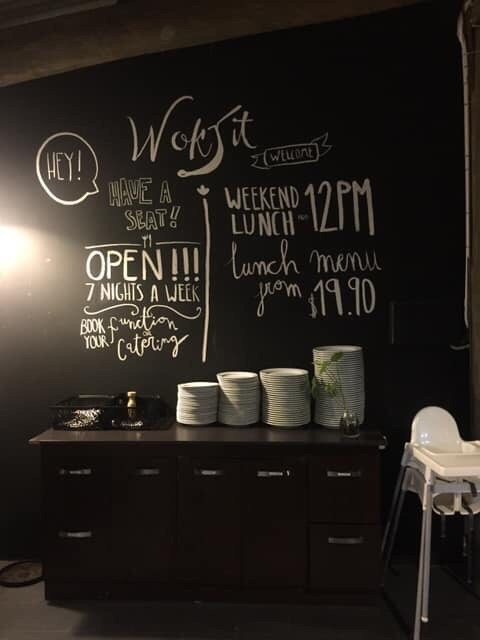 Wok It
WELCOME
HEY!
HAVE A
SEAT!
OPEN!!!
7 NIGHTS A WEEK
BOOK function
YOUR or
Catering
WEEKEND
LUNCH 12PM
lunch menu
from $19.90